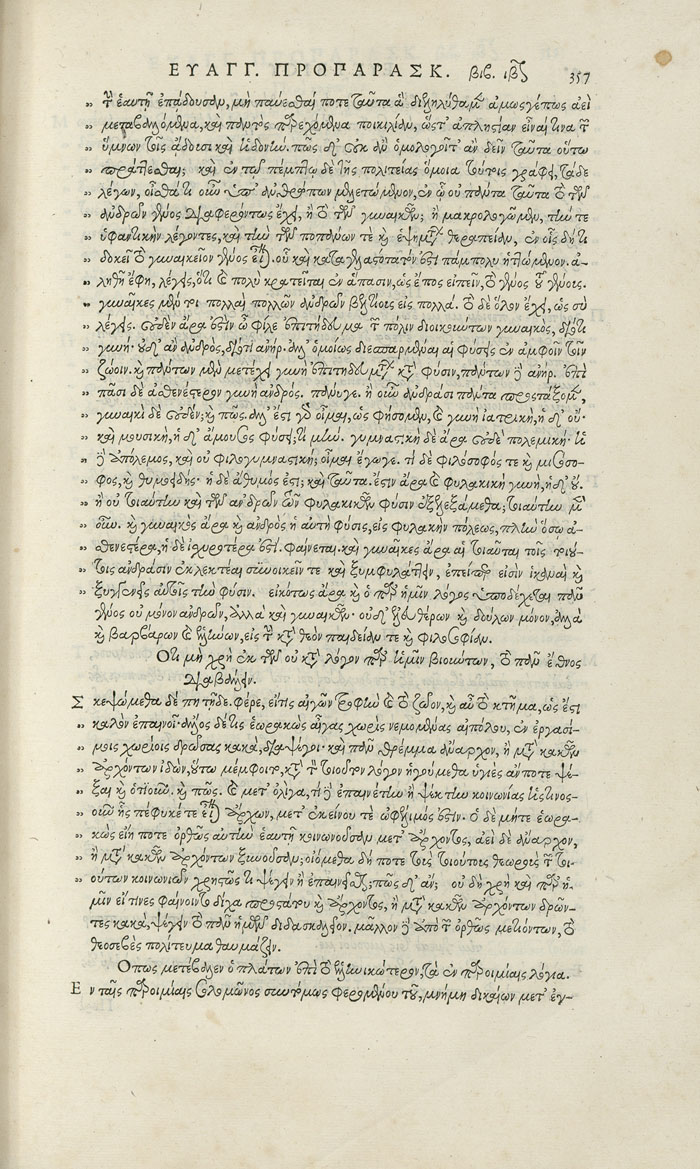 ΕΥΑΓΓ. ΠΡΟΠΑΡΑΣΚ. βιβ. ιβ. 357
τῇ ἑαυτῇ ἐπᾴδουσαν, μὴ παύεσθαί ποτε ταῦτα ἃ διεληλύθαμεν ἀμωσγέπως ἀεὶ
μεταβαλλόμενα, καὶ πάντως παρεχόμενα ποικιλίαν, ὥστ' ἀπληστίαν εἶναί τινα τῶν
ὕμνων τοῖς ᾄδουσι καὶ ἡδονήν. πῶς δ' οὐκ ἂν ὁμολογοῖτ' ἂν δεῖν ταῦτα οὕτω
πράττεσθαι; καὶ ἐν τῷ πέμπτῳ δὲ τῆς πολιτείας ὅμοια τούτοις γράφει, τάδε
λέγων, οἶσθά τι οὖν ὑπὸ ἀνθρώπων μελετώμενον, ἐν ᾧ οὐ πάντα ταῦτα τὸ τῶν
ἀνδρῶν γένος διαφερόντως ἔχει, ἢ τὸ τῶν γυναικῶν; ἢ μακρολογῶμεν, τήν τε
ὑφαντικὴν λέγοντες, καὶ τὴν τῶν ποπάνων τε καὶ ἑψημάτων θεραπείαν, ἐν οἷς δή τι
δοκεῖ τὸ γυναικεῖον γένος εἶναι. οὗ καὶ καταγελαστότατόν ἐστι πάμπολυ ἡττώμενον. ἀ-
ληθῆ ἔφη, λέγεις, ὅτι καὶ πολὺ κρατεῖται ἐν ἅπασιν, ὡς ἔπος εἰπεῖν, τὸ γένος τοῦ γένοις.
γυναῖκες μέν τοι πολλαὶ πολλῶν ἀνδρῶν βελτίοις εἰς πολλά. τὸ δὲ ὅλον ἔχει, ὡς σὺ
λέγεις. οὐδὲν ἄρα ἐστὶν ὦ φίλε ἐπιτήδευμα τῶν πόλιν διοικούντων γυναικὸς, διότι
γυνή· οὐδ' αὖ ἀνδρὸς, διότι ἀνήρ. ἀλλ' ὁμοίως διεσπαρμέναι αἱ φύσεις ἐν ἀμφοῖν τοῖν
ζώοιν. καὶ πάντων μὲν μετέχει γυνὴ ἐπιτηδευμάτων κατὰ φύσιν, πάντων δὲ ἀνήρ. ἐπὶ
πᾶσι δὲ ἀσθενέστερον γυνὴ ἀνδρός. πάνυγε. ἦ οὖν ἀνδράσι πάντα προστάξομεν,
γυναικὶ δὲ οὐδέν; καὶ πῶς. ἀλλ' ἔστι γὰρ οἶμαι, ὡς φήσομεν, καὶ γυνὴ ἰατρικὴ, ἡ δ' οὔ·
καὶ μουσικὴ, ἡ δ' ἄμουσος φύσει; τί μήν. γυμναστικὴ δὲ ἄρα οὐδὲ πολεμική· ἡ
δὲ ἀπόλεμος, καὶ οὐ φιλογυμναστική; οἶμαι ἔγωγε. τί δὲ φιλόσοφός τε καὶ μισοσο-
φος, καὶ θυμοειδής· ἡ δὲ ἄθυμός ἐστι; καὶ ταῦτα. ἔστιν ἄρα καὶ φυλακικὴ γυνὴ, ἡ δ' οὔ.
ἢ οὐ τοιαύτην καὶ τῶν ἀνδρῶν τῶν φυλακικῶν φύσιν ἐξελεξάμεθα; τοιαύτην μὲν
οὖν. καὶ γυναικὸς ἄρα καὶ ἀνδρὸς ἡ αὐτὴ φύσις, εἰς φυλακὴν πόλεως, πλὴν ὅσῳ ἀ-
σθενεστέρα, ἡ δὲ ἰσχυροτέρα ἐστί. φαίνεται. καὶ γυναῖκες ἄρα αἱ τοιαῦται τοῖς τοιού-
τοις ἀνδράσιν ἐκλεκτέαι συνοικεῖν τε καὶ ξυμφυλάττειν, ἐπείπερ εἰσὶν ἱκαναὶ καὶ
ξυγγενεῖς αὐτοῖς τὴν φύσιν. εἰκότως ἄρα καὶ ὁ παρ' ἡμῖν λόγος ὑποδέχεται πᾶν
γένος οὐ μόνον ἀνδρῶν, ἀλλὰ καὶ γυναικῶν· οὐδ' ἐλευθέρων καὶ δούλων μόνον, ἀλλὰ
καὶ βαρβάρων καὶ ἑλλήνων, εἰς τὴν κατὰ θεὸν παιδείαν τε καὶ φιλοσοφίαν.
Ὅτι μὴ χρὴ ἐκ τῶν οὐ κατὰ λόγον παρ' ἡμῖν βιούντων, τὸ πᾶν ἔθνος
διαβάλλειν.
Σκεψώμεθα δὲ πη τῇδε. φέρε, εἴ τις αἰγῶν τροφὴν καὶ τὸ ζῶον, καὶ αὖ τὸ κτῆμα, ὡς ἔστι
καλὸν ἐπαινοῖ· ἄλλος δέ τις ἑωρακὼς αἶγας χωρὶς νεμομένας αἰπόλου, ἐν ἐργασί-
μοις χωρίοις δρώσας κακὰ, διαψέγοι· καὶ πᾶν θρέμμα ἄναρχον, ἢ μετὰ κακῶν
ἀρχόντων ἰδὼν, οὕτω μέμφοιτο, κατὰ τὸν τοιοῦτον λόγον ἡγούμεθα ὑγιὲς ἄν ποτε ψέ-
ξαι καὶ ὁτιοῦν. καὶ πῶς. καὶ μετ' ὀλίγα, τί δὲ ἐπαινέτην ἢ ψέκτην κοινωνίας ἡστινος-
οῦν ἧς πέφυκέ τε εἶναι ἄρχων, μετ' ἐκείνου τὲ ὠφέλιμός ἐστιν. ὁ δὲ μήτε ἑωρα-
κὼς εἴη ποτε ὀρθῶς αὐτὴν ἑαυτῇ κοινωνοῦσαν μετ' ἄρχοντος, ἀεὶ δὲ ἄναρχον,
ἢ μετὰ κακῶν ἀρχόντων ξυνοῦσαν; οἰόμεθα δή ποτε τοὺς τοιούτους θεωροὺς τῶν τοι-
ούτων κοινωνιῶν χρηστῶς τι ψέγειν ἢ ἐπαινεῖν; πῶς δ' ἄν; οὐ δὴ χρὴ καὶ παρ' ἡ-
μῖν εἴ τινες φαίνοιντο δίχα προστάτου καὶ ἄρχοντος, ἢ μετὰ κακῶν ἀρχόντων δρῶν-
τες κακὰ, ψέγειν τὸ πᾶν ἡμῶν διδασκαλεῖον. μᾶλλον δὲ ἀπὸ τῶν ὀρθῶς μετιόντων, τὸ
θεοσεβὲς πολίτευμα θαυμάζειν.
Ὅπως μετέβαλεν ὁ πλάτων ἐπὶ τὸ ἑλληνικώτερον, τὰ ἐν παροιμίαις λόγια.
Ἐν ταῖς παροιμίαις σολομῶνος συντόμως φερομένου τοῦ, μνήμη δικαίων μετ' ἐγ-